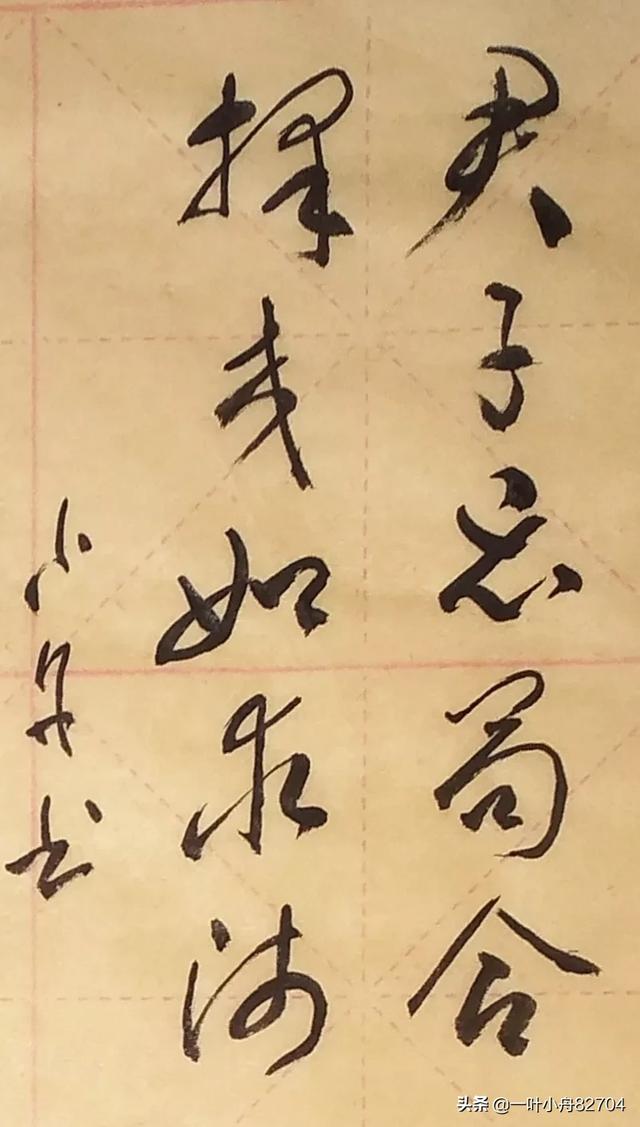 君子忌苟合
择交如求师
小舟书
头条 @一叶小舟82704